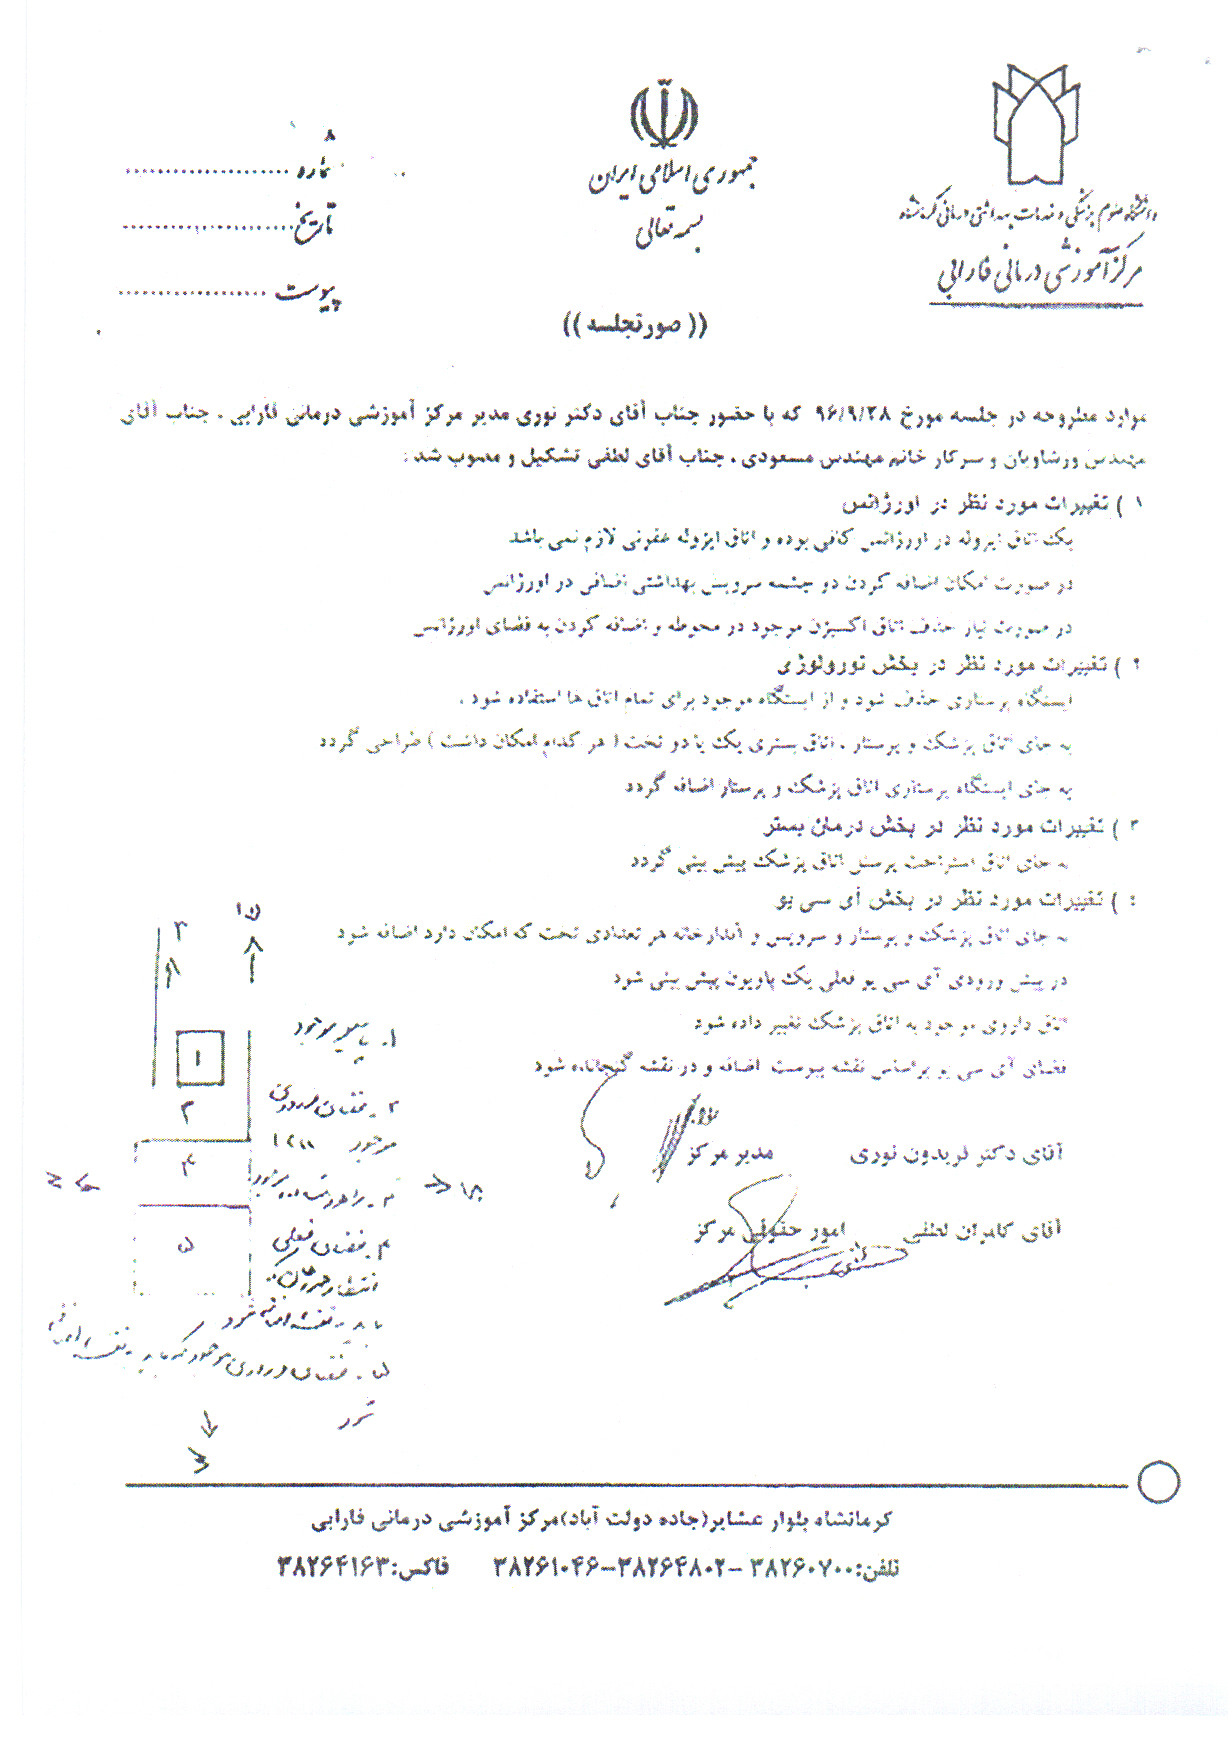 دانشگاه علوم پزشکی و خدمات بهداشتی درمانی کرمانشاه
مرکز آموزشی درمانی فارابی
جمهوری اسلامی ایران
بسمه تعالی
شماره
تاریخ
پیوست
(( صورتجلسه ))
موارد مطروحه در جلسه مورخ ۹۶/۹/۲۸ که با حضور جناب آقای دکتر نوری مدیر مرکز آموزشی درمانی فارابی . جناب آقای
مهندس ورشاویان و سرکار خانم مهندس مسعودی . جناب آقای لطفی تشکیل و مصوب شد :
۱ ) تغییرات مورد نظر در اورژانس
یک اتاق ایزوله در اورژانس کافی بوده و اتاق ایزوله عفونی لازم نمی باشد
در صورت امکان اضافه کردن دو چشمه سرویس بهداشتی اضافی در اورژانس
در صورت نیاز حذف اتاق اکسیژن موجود در محوطه و اضافه کردن به فضای اورژانس
۲ ) تغییرات مورد نظر در بخش نورولوژی
ایستگاه پرستاری حذف شود و از ایستگاه موجود برای تمام اتاق ها استفاده شود .
به جای اتاق پزشک و پرستار . اتاق بستری یک یا دو تخت ( هر کدام امکان داشت ) طراحی گردد
به جای ایستگاه پرستاری اتاق پزشک و پرستار اضافه گردد
۳ ) تغییرات مورد نظر در بخش درمان بستر
به جای اتاق استراحت پرسنل اتاق پزشک پیش بینی گردد
۴ ) تغییرات مورد نظر در بخش آی سی یو
به جای اتاق پزشک و پرستار و سرویس و آبدارخانه هر تعدادی تخت که امکان دارد اضافه شود
در پیش ورودی آی سی یو فعلی یک پاویون پیش بینی شود
اتاق داروی موجود به اتاق پزشک تغییر داده شود
فضای آی سی یو براساس نقشه پیوست اضافه و در نقشه گنجانده شود
آقای دکتر فریدون نوری مدیر مرکز
آقای کامران لطفی امور حقوقی مرکز
۳
۱
۲
۴
۵
۱. موجود
۲ ـ فضای ورودی
موجود
۳ ـ راهرو
۴ ـ فضای فعلی
انتظار
باید به نقشه اضافه شود
۵ ـ فضای ورودی موجود که باید به نقشه اضافه
شود
کرمانشاه بلوار عشایر(جاده دولت آباد)مرکز آموزشی درمانی فارابی
تلفن:۳۸۲۶۰۷۰۰ –۳۸۲۶۴۸۰۲–۳۸۲۶۱۰۴۶ فاکس:۳۸۲۶۴۱۶۳